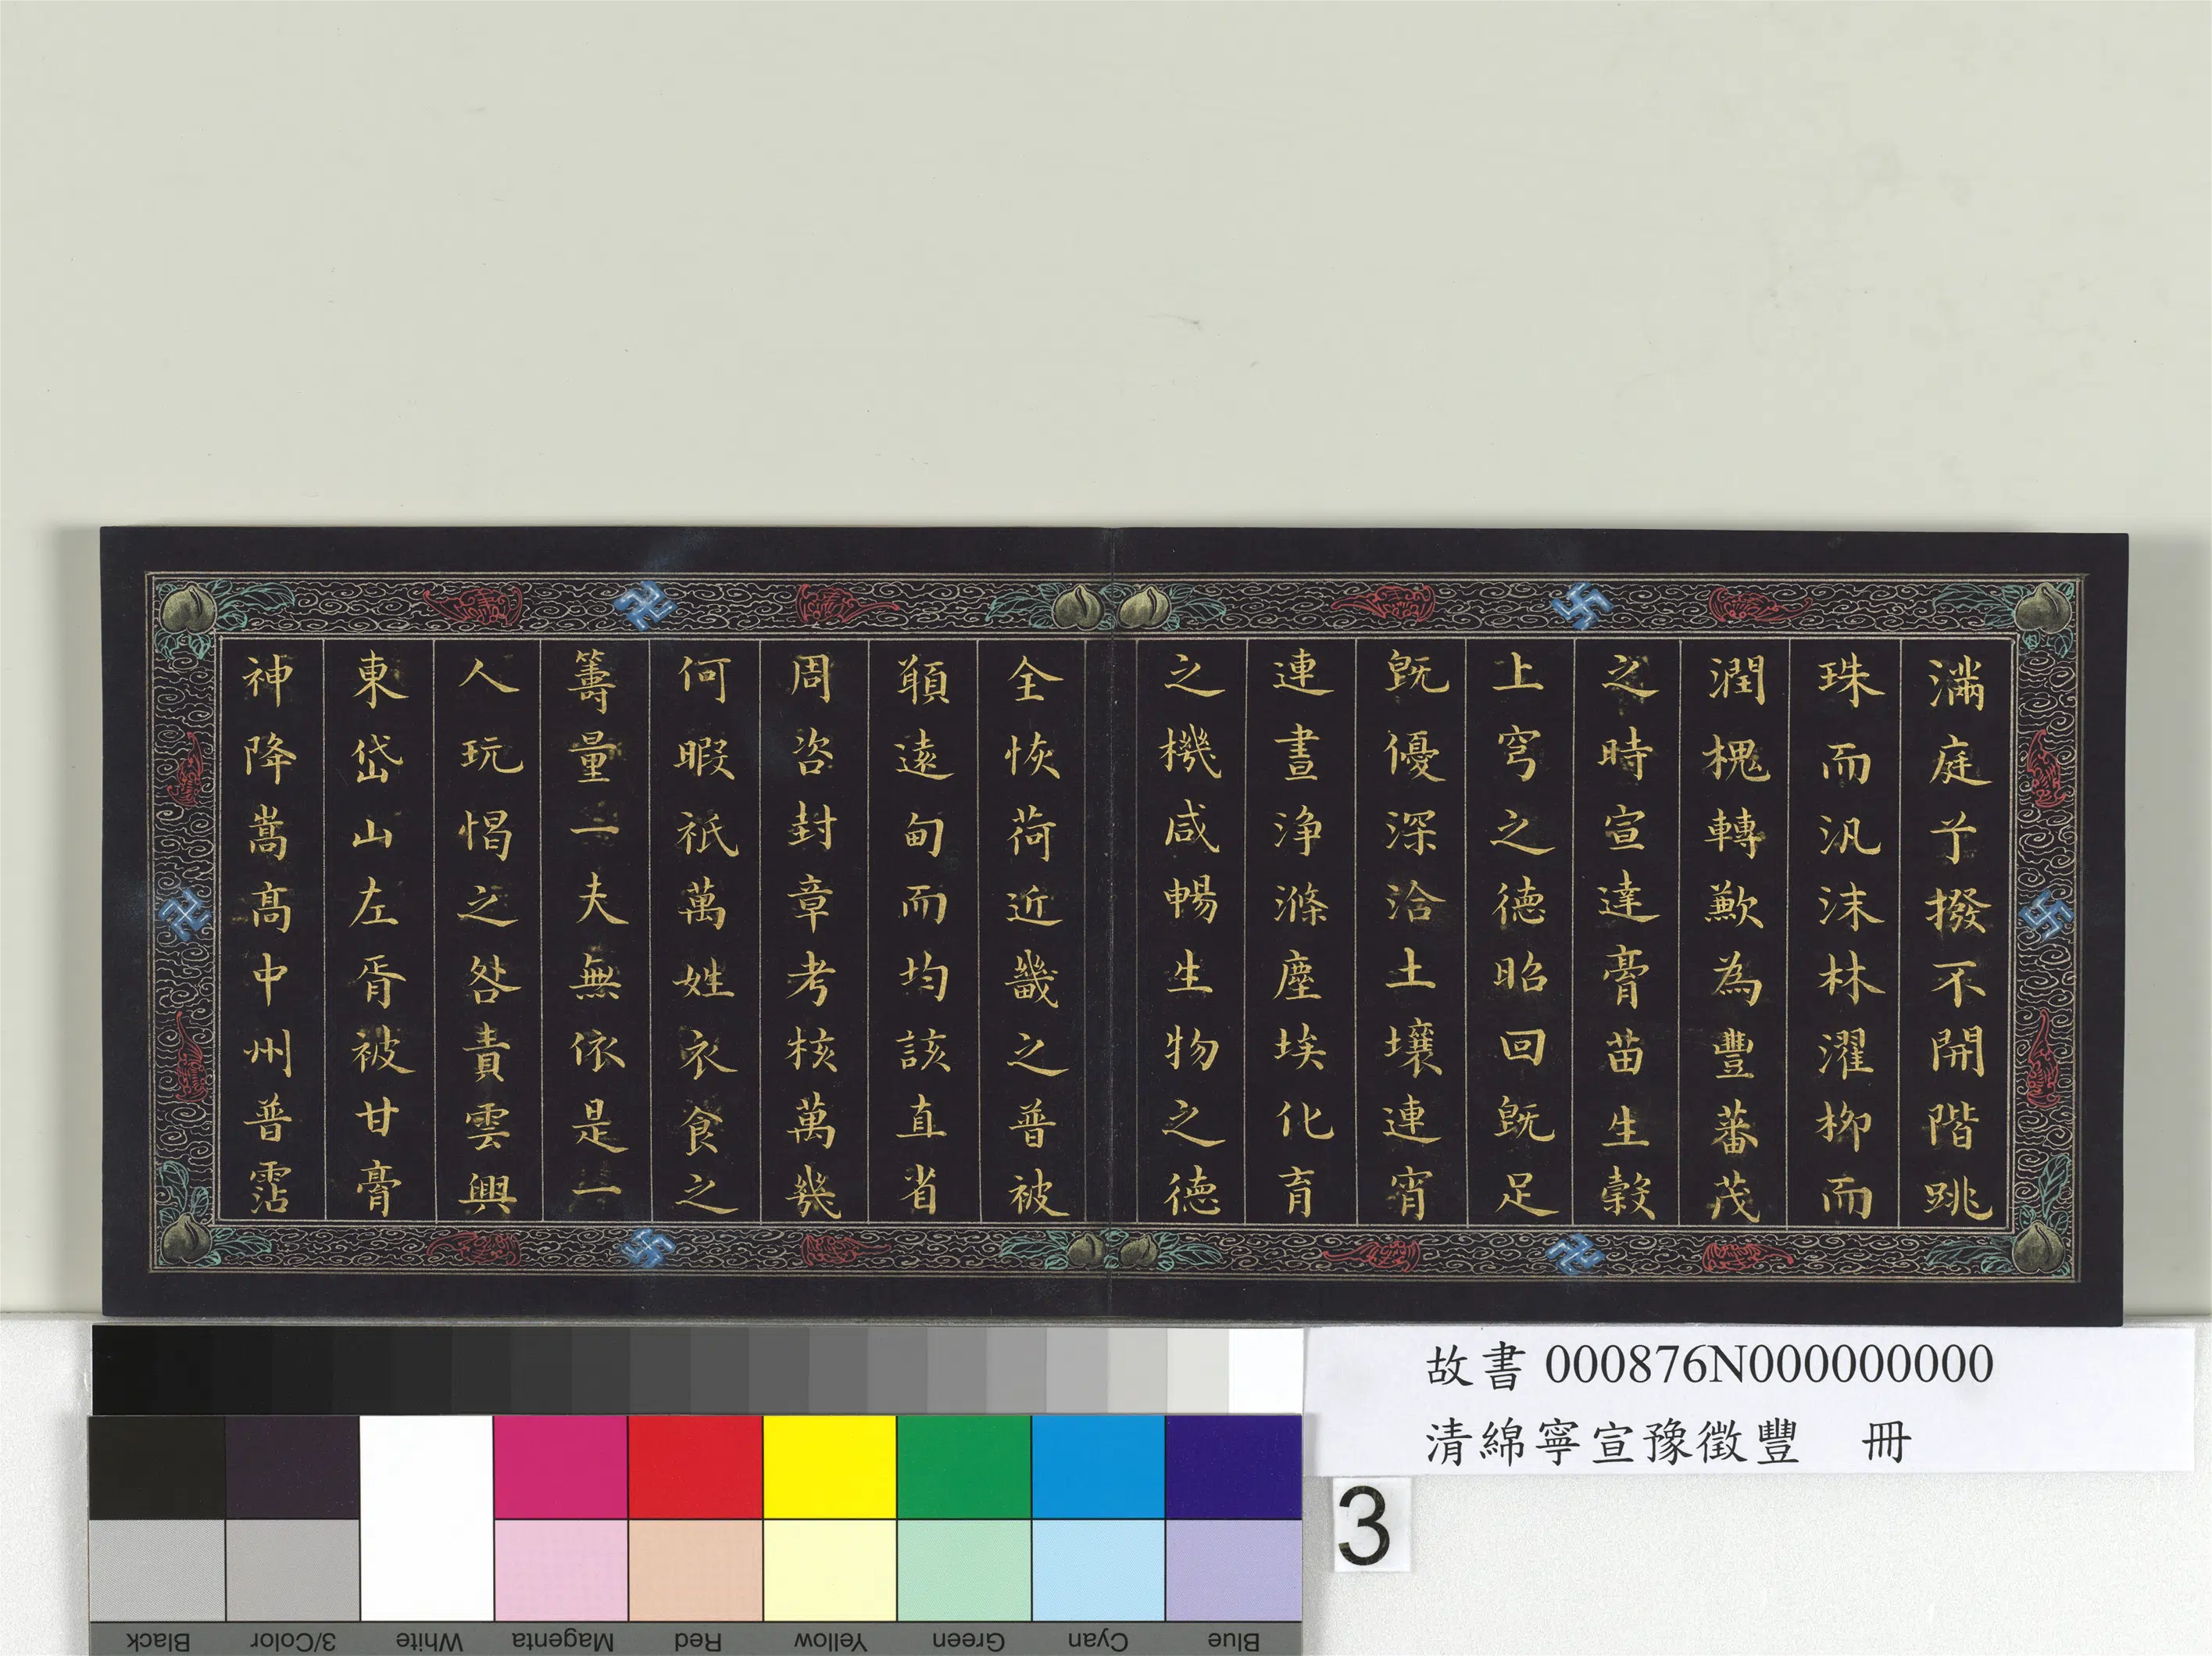 滿庭兮撥不開階跳
珠而汎沫林濯柳而
潤槐轉歉為豐蕃茂
之時宣達膏苗生穀
上穹之德昭回既足
既優深洽土壤連宵
連晝淨滌塵埃化育
之機咸暢生物之德
全恢荷近畿之普被
願遠甸而均該直省
周咨封章考核萬幾
何暇祇萬姓衣食之
籌量一夫無依是一
人玩愒之咎責雲興
東岱山左胥被甘膏
神降嵩高中州普霑
故書 000876N000000000
清綿寧宣豫徵豐 冊
3
Black 3/Color White Magenta Red Yellow Green Cyan Blue